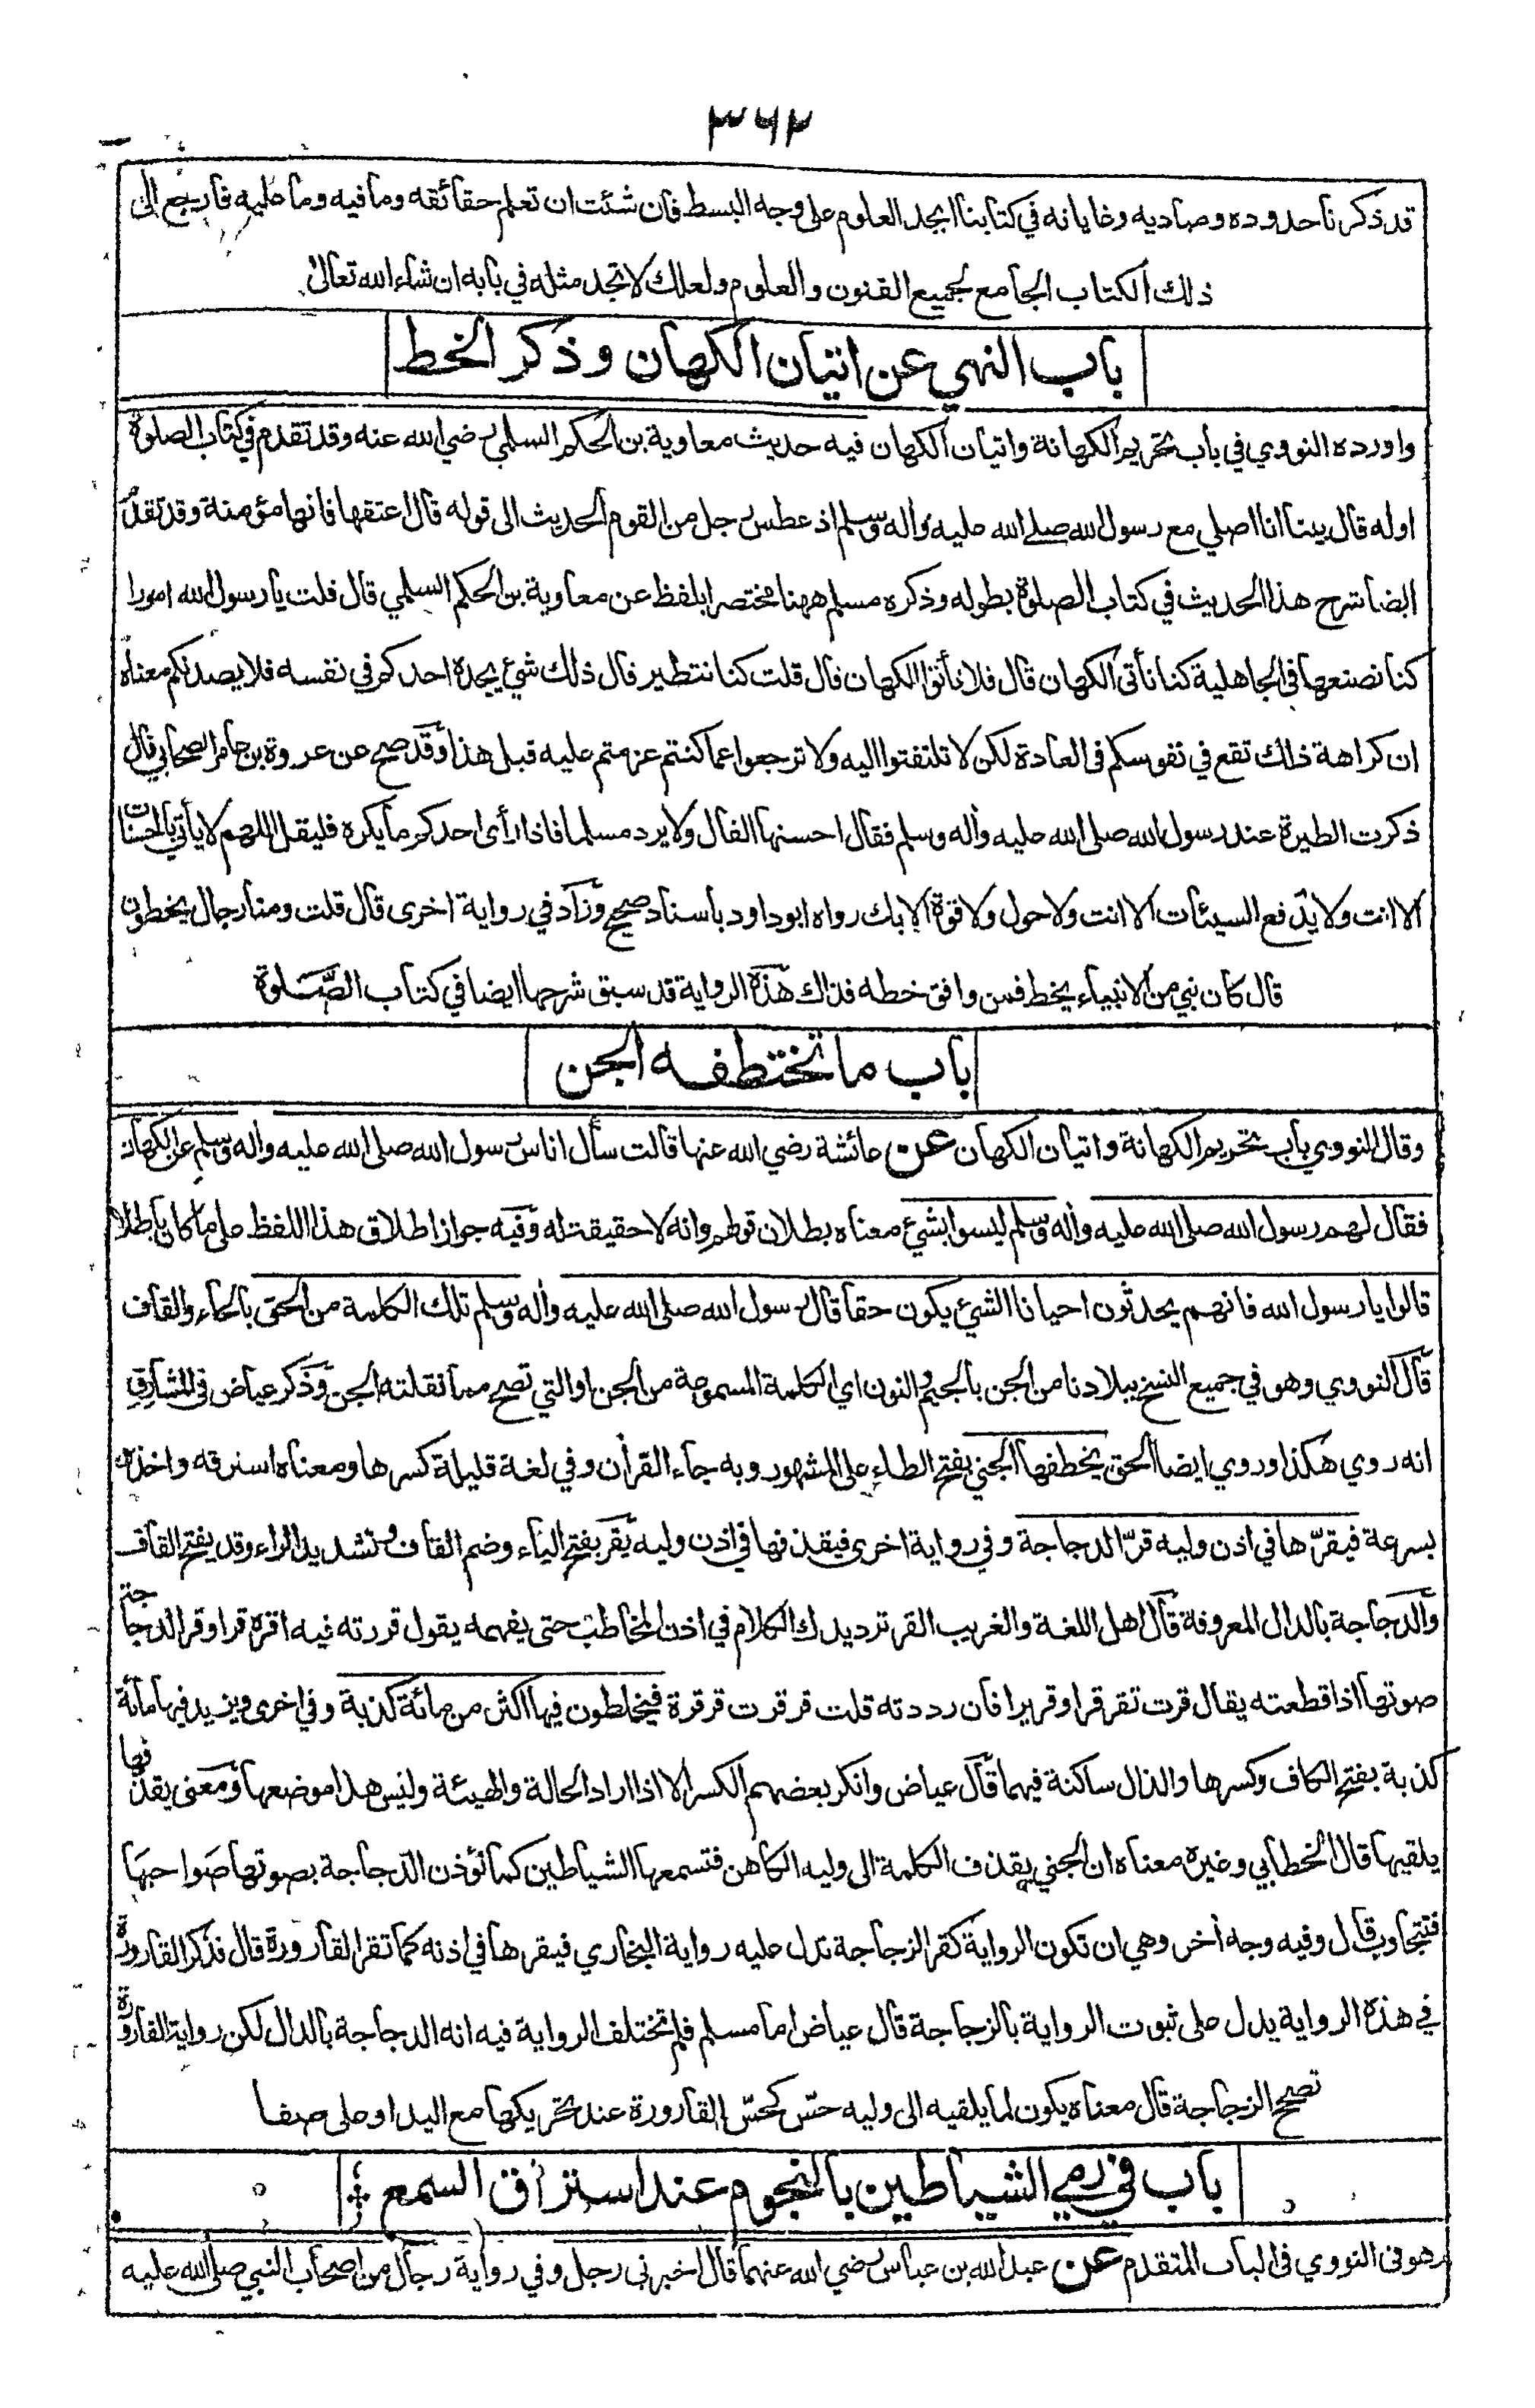 ٣٦٢
قد ذكرنا حدوده ومباديه وغاياته في كتابنا ابجد العلوم على وجه البسط فان شئت ان تعلم حقائقه وما فيه وما عليه فارجع الى
ذلك الكتاب الجامع لجميع الفنون والعلوم ولعلك لا تجد مثله في بابه ان شاء الله تعالى
باب النهي عن اتيان الكهان وذكر الخط
واورده النووي في باب تحريم الكهانة واتيان الكهان فيه حديث معاوية بن الحكم السلمي رضي الله عنه وقد تقدم في كتاب الصلوة
اوله قال بينا انا اصلي مع رسول الله صلى الله عليه وأله وسلم اذ عطس رجل من القوم الحديث الى قوله قال اعتقها فانها مؤمنة وقد تقدم
ايضا شرح هذا الحديث في كتاب الصلوة بطوله وذكره مسلم ههنا مختصرا بلفظ عن معاوية بن الحكم السلمي قال قلت يا رسول الله امورا
كنا نصنعها في الجاهلية كنا نأتي الكهان قال فلا تأتوا الكهان قال قلت كنا نتطير قال ذلك شئ يجده احدكم في نفسه فلا يصدنكم معناه
ان كراهة ذلك تقع في نفوسكم في العادة لكن لا تلتفتوا اليه ولا ترجعوا عما كنتم عزمتم عليه قبل هذا وقد صح عن عروة بن عامر الصحابي قال
ذكرت الطيرة عند رسول الله صلى الله عليه وأله وسلم فقال احسنها الفال ولا يرد مسلما فاذا رأى احدكم ما يكره فليقل اللهم لا يأتي بالحسنات
الا انت ولا يدفع السيئات الا انت ولا حول ولا قوة الا بك رواه ابو داود باسناد صحيح وزاد في رواية اخرى قال قلت ومنا رجال يخطون
قال كان نبي من الانبياء يخط فمن وافق خطه فذاك هذه الرواية قد سبق شرحها ايضا في كتاب الصّلوة
باب ما تختطفه الجن
وقال النووي باب تحريم الكهانة واتيان الكهان عن عائشة رضي الله عنها قالت سأل اناس رسول الله صلى الله عليه وأله وسلم عن الكهان
فقال لهم رسول الله صلى الله عليه وأله وسلم ليسوا بشئ معناه بطلان قولهم وانه لا حقيقة له وفيه جواز اطلاق هذا اللفظ على ما كان باطلا
قالوا يا رسول الله فانهم يحدثون احيانا الشئ يكون حقا قال رسول الله صلى الله عليه وأله وسلم تلك الكلمة من الحق بالحاء والقاف
قال النووي وهو في جميع النسخ ببلادنا من الجن بالجيم والنون اي الكلمة المسموعة من الجن او التي تصح مما نقلته الجن وذكر عياض في المشارق
انه روي هكذا وروي ايضا الحق يخطفها الجني بفتح الطاء على المشهور وبه جاء القرأن وفي لغة قليلة كسرها ومعناه استرقه واخذه
بسرعة فيقرّها في اذن وليه قرّ الدجاجة وفي رواية اخرى فيقذفها في اذن وليه يقر بفتح الياء وضم القاف وتشديد الراء وقد يفتح القاف
والدجاجة بالدال المعروفة قال اهل اللغة والغريب القر ترديدك الكلام في اذن المخاطب حتى يفهمه يقول قررته فيه اقره قرا وقر الدجاجة
صوتها اذا قطعته يقال قرت تقر قرا وقريرا فان رددته قلت قرقرت قرقرة فيخلطون فيها اكثر من مائة كذبة وفي اخرى ويزيد فيها مائة
كذبة بفتح الكاف وكسرها والذال ساكنة فيهما قال عياض وانكر بعضهم الكسر الا اذا اراد الحالة والهيئة وليس هذا موضعها ومعنى يقذفها
يلقيها قال الخطابي وغيره معناه ان الجني يقذف الكلمة الى وليه الكاهن فتسمعها الشياطين كما تؤذن الدجاجة بصوتها صواحبها
فتتجاوب قال وفيه وجه أخر وهي ان تكون الرواية كقر الزجاجة تدل عليه رواية البخاري فيقرها في اذنه كما تقر القارورة قال فذكر القارورة
في هذه الرواية يدل على ثبوت الرواية بالزجاجة قال عياض اما مسلم فلم تختلف الرواية فيه انه الدجاجة بالدال لكن رواية القارورة
تصحح الزجاجة قال معناه يكون لما يلقيه الى وليه حسّ كحسّ القارورة عند تحريكها مع اليد او على صفا
باب في رمي الشياطين بالنجوم عند استراق السمع
وهو في النووي في الباب المتقدم عن عبد الله بن عباس رضي الله عنهما قال اخبرني رجل وفي رواية رجال من اصحاب النبي صلى الله عليه